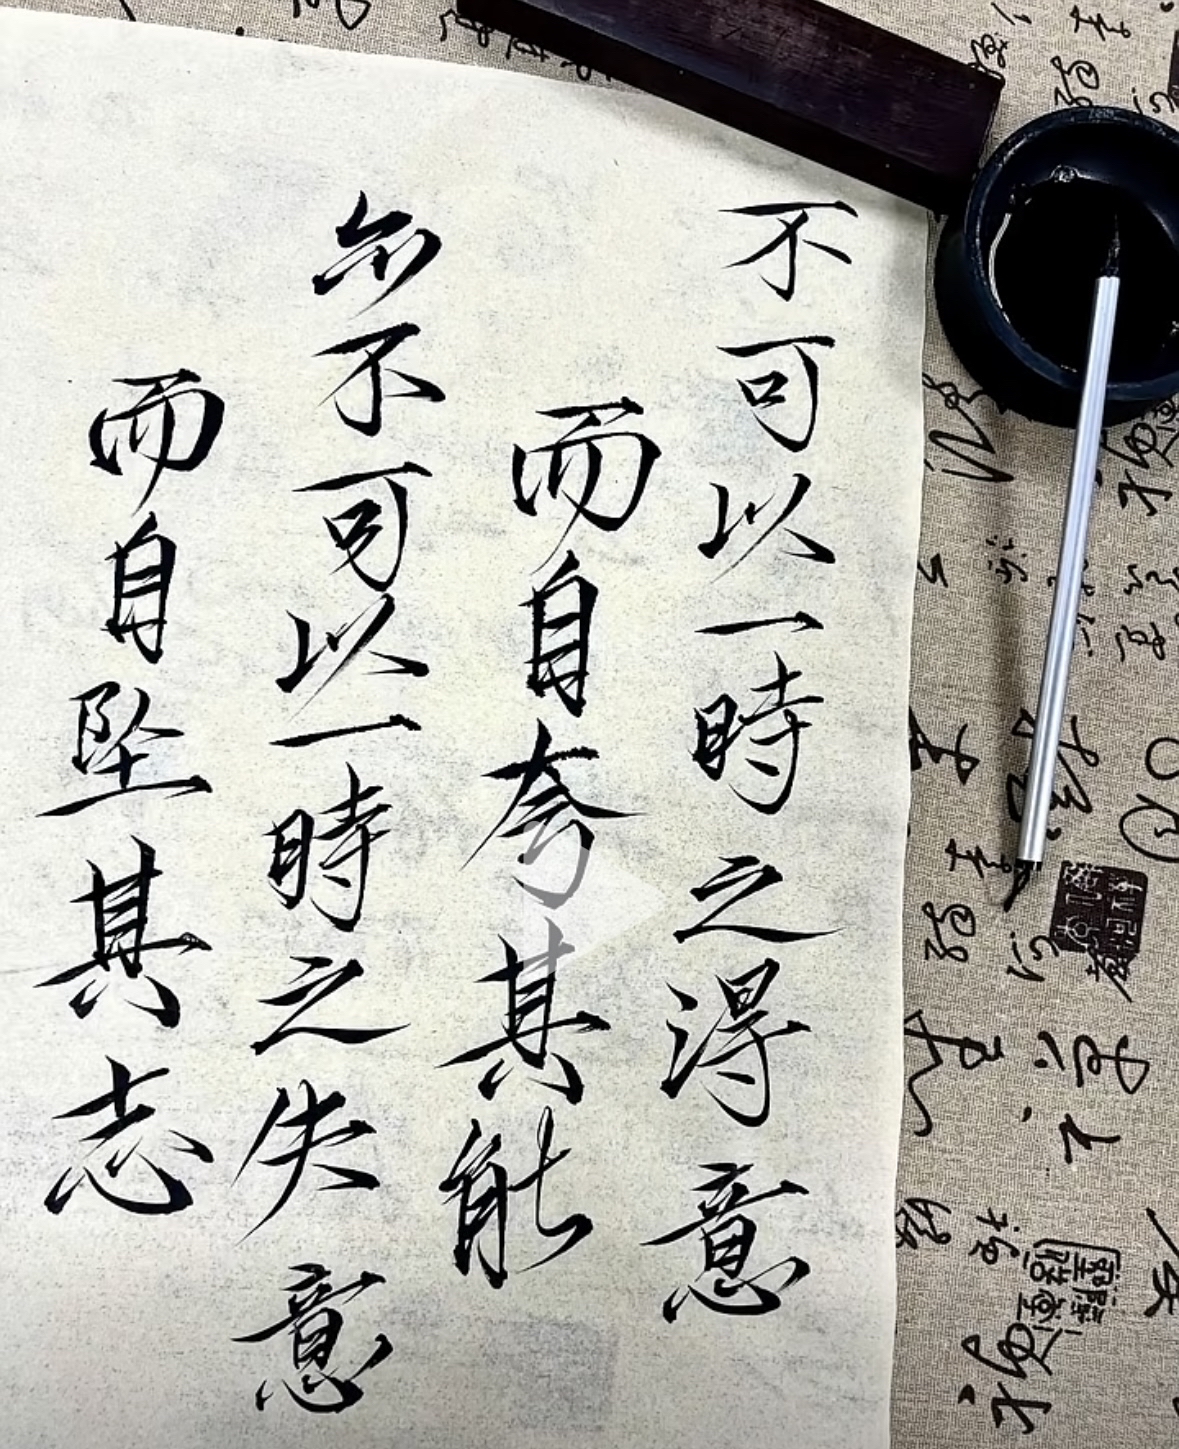 不可以一時之得意
而自夸其能
亦不可以一時之失意
而自坠其志